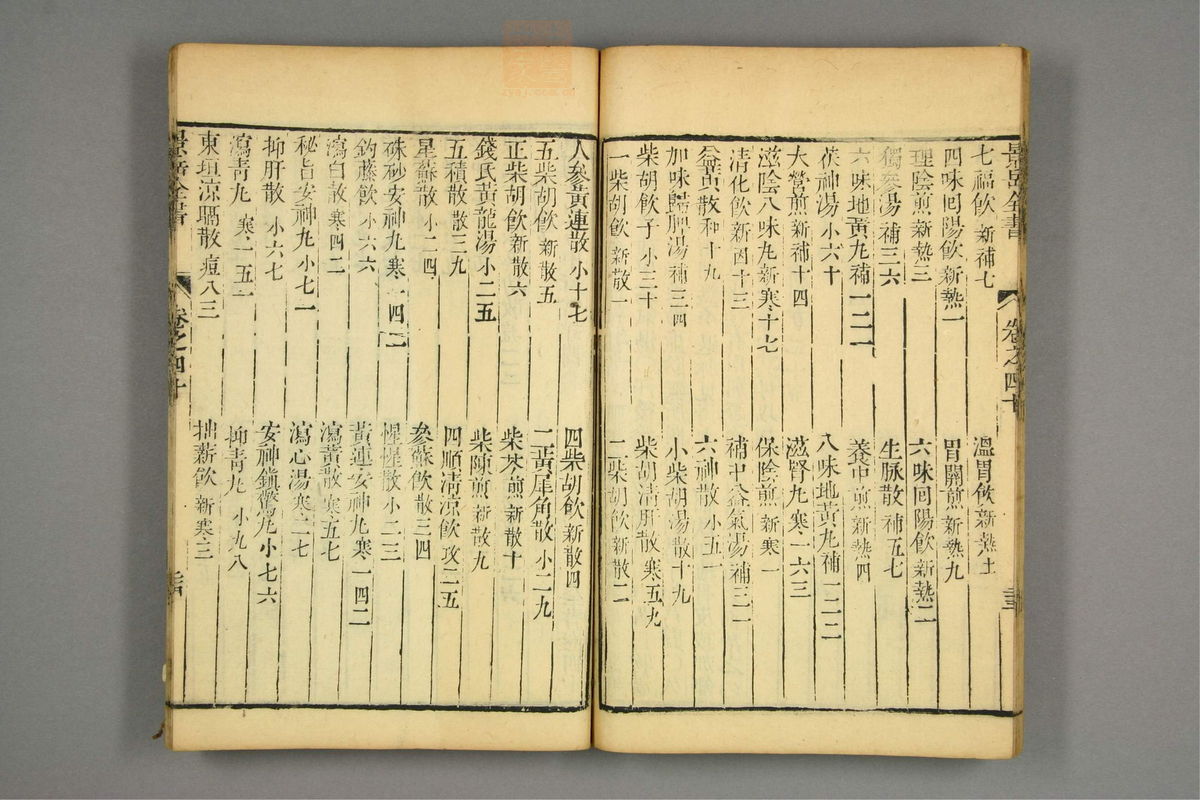 景岳全書 卷之四十
七福飲 新補七
溫胃飲 新熱五
四味回陽飲 新熱一
胃關煎 新熱九
理陰煎 新熱三
六味回陽飲 新熱二
獨參湯 補三六
生脉散 補五七
六味地黃丸 補一二一
養中煎 新熱四
茯神湯 小六十
八味地黃丸 補一二二
大營煎 新補十四
滋腎丸 寒一六三
滋陰八味丸 新寒十七
保陰煎 新寒一
清化飲 新因十三
補中益氣湯 補三一
益黃散 和十九
六神散 小五一
加味歸脾湯 補三四
小柴胡湯 散十九
柴胡飲子 小三十
柴胡清肝散 寒五九
一柴胡飲 新散一
二柴胡飲 新散二
人參黃連散 小十七
四柴胡飲 新散四
五柴胡飲 新散五
二黃犀角散 小二九
正柴胡飲 新散六
柴芩煎 新散十
錢氏黃龍湯 小二五
柴陳煎 新散九
五積散 散三九
四順清涼飲 攻二五
星蘇散 小二四
參蘇飲 散三四
硃砂安神丸 寒一四二
惺惺散 小二三
鈎藤飲 小六六
黃連安神丸 寒一四二
瀉白散 寒四二
瀉黃散 寒五七
秘旨安神丸 小七一
瀉心湯 寒二七
抑肝散 小六七
安神鎮驚丸 小七六
瀉青丸 寒一五一
抑青丸 小九八
東垣涼膈散 痘八三
抽薪飲 新寒三
景岳全書 卷之四十